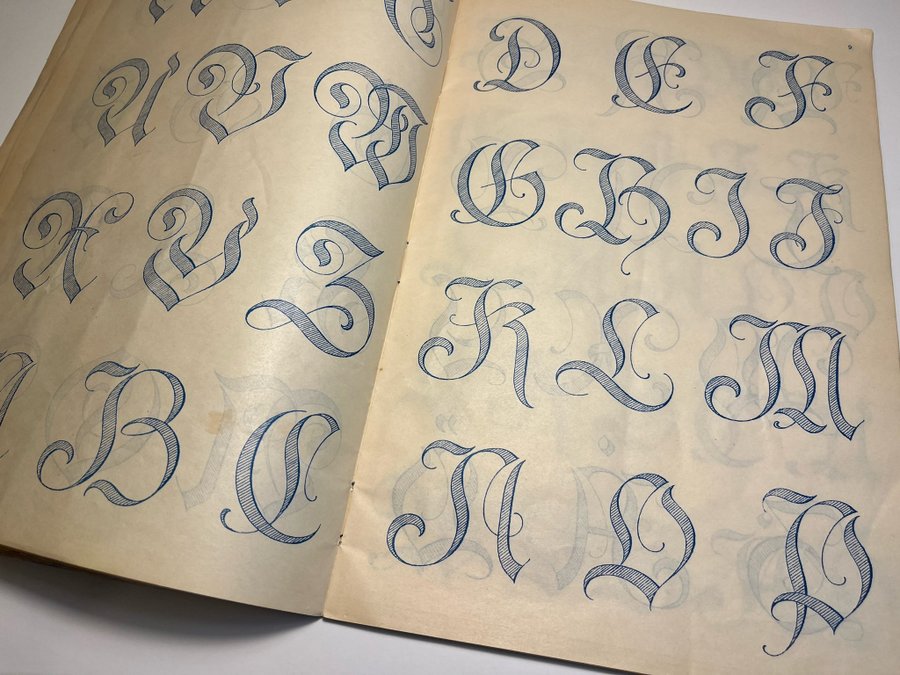 U V W
X Y Z
A B C
D E F
G H I J
K L M
N O P